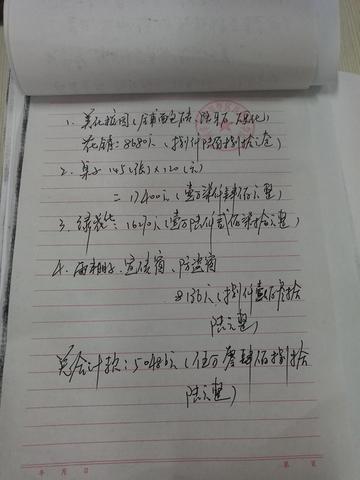 1. 美化校园(铺面包砖,
花销:8680元(捌仟陆佰捌拾元
2. 桌子145(张)×120(元)
=17400元(壹万柒仟肆佰元整)
3. 绿花:16270元(壹万陆仟贰佰柒拾元整)
4. 雨棚, 宣传窗,防盗窗
8136元(捌仟壹佰叁拾
陆元整)
总合计款:50486元(伍万零肆佰捌拾
陆元整)
年 月 日 第 页